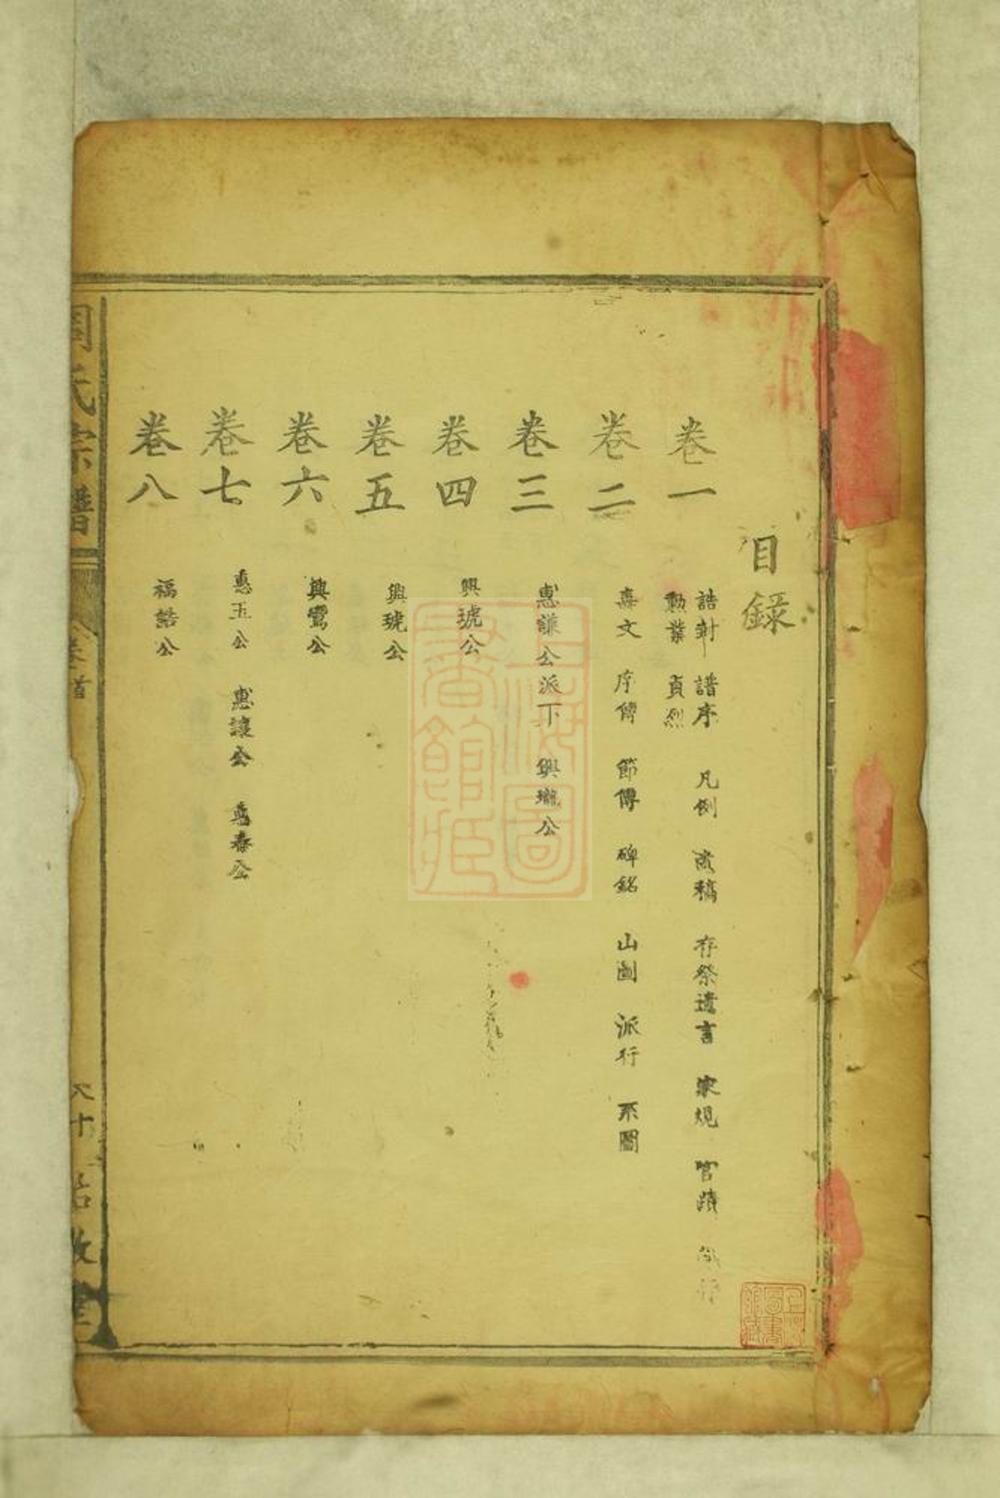 目錄
卷一
誥封 譜序 凡例 存祭遺言 家規 宦蹟
勳業 貞烈
卷二
壽文 序傳 節傳 碑銘 山圖 派行 系圖
卷三
惠謙公派下 興瓏公
卷四
興琥公
卷五
興琥公
卷六
興鸞公
卷七
惠玉公 惠讓公 惠泰公
卷八
福誥公
周氏宗譜
卷首
上海圖書館藏
上海圖書館藏